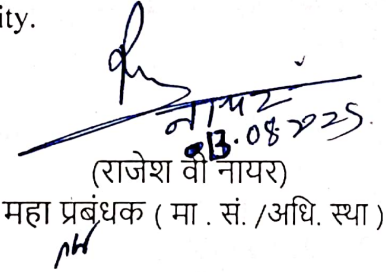 ity.
नायर
13.08.2025
(राजेश वी नायर)
महा प्रबंधक ( मा . सं. /अधि. स्था )